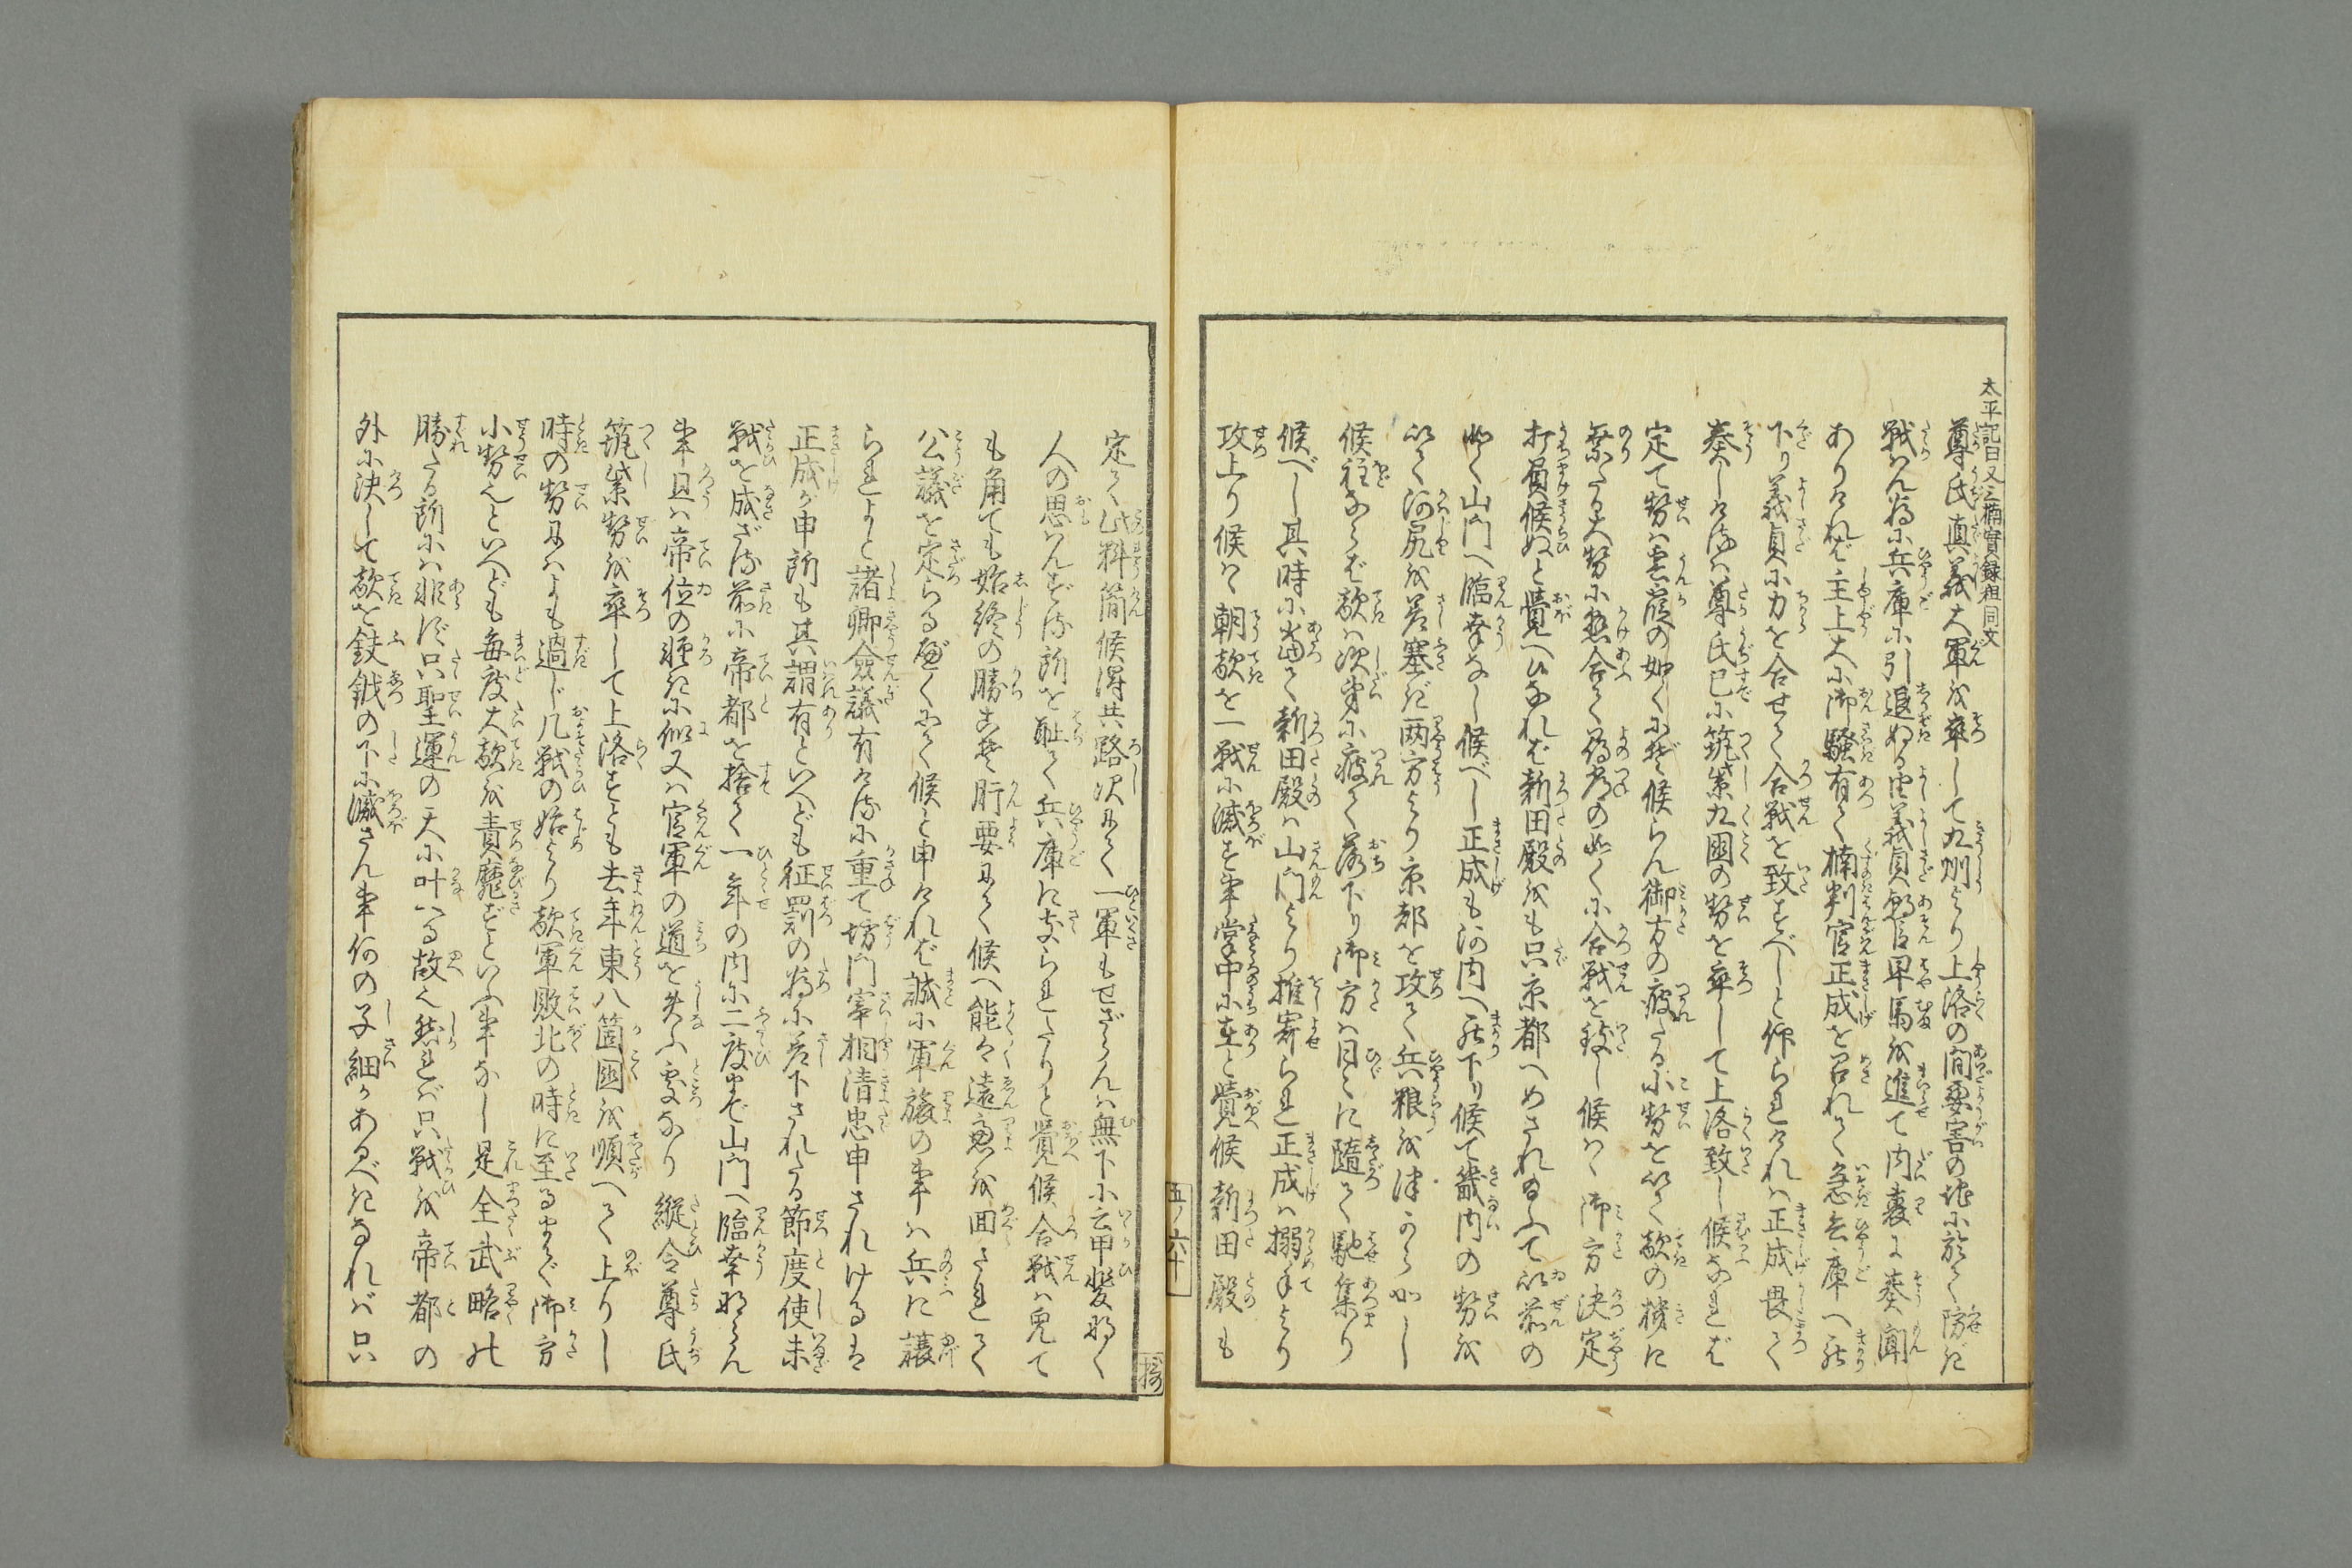 太平記曰又三楠實録粗同文
尊氏直義大軍を率して九州より上洛の間要害の地に於て防ぎ
戦はん為に兵庫に引退ぬる由義貞朝臣早馬を進て内裏に奏聞
ありければ主上大に御騒有て楠判官正成を召れて急兵庫へ罷
下り義貞に力を合せて合戦を致すべしと仰られければ正成畏て
奏しけるは尊氏已に筑紫九國の勢を率して上洛致し候なれば
定て勢は雲霞の如くにぞ候らん御方の疲たる小勢を以て敵の機に
乗たる大勢に懸合て尋常の如くに合戦を致し候はゞ御方決定
打負候ぬと覺へひなれば新田殿をも只京都へめされ給ふて以前の
如く山門へ臨幸なし候べし正成も河内へ罷下り候て畿内の勢を
以て河尻を差塞ぎ両方より京都を攻て兵粮を津からかし
候程ならば敵は次第に疲て落下り御方は日々に隨て馳集り
候べし其時に當て新田殿は山門より推寄られ正成は搦手より
攻上り候はゞ朝敵を一戦に滅す事掌中に在と覺候新田殿も
五ノ六十
定て此料簡候得共路次にて一軍もせざらんは無下に云甲斐なく
人の思はんずる所を耻て兵庫に支られたりと覺候合戦は兎て
も角ても始終の勝こそ肝要にて候へ能々遠慮を回されて
公議を定らるべくにて候と申ければ誠に軍旅の事は兵に譲
られよと諸卿僉議有けるに重て坊門宰相清忠申されけるは
正成が申所も其謂有といへども征罰の為に差下されたる節度使未
戦を成ざる前に帝都を捨て一年の内に二度まで山門へ臨幸ならん
事且は帝位の軽きに似又は官軍の道を失ふ處なり縦令尊氏
筑紫勢を率して上洛すとも去年東八箇國を順へて上りし
時の勢にはよも過じ凡戦の始より敵軍敗北の時に至るまで御方
小勢也といへども毎度大敵を責靡ずといふ事なし是全武略の
勝たる所には非ず只聖運の天に叶へる故也然れば只戦を帝都の
外に決して敵を鈇鉞の下に滅さん事何の子細かあるべきなれば只